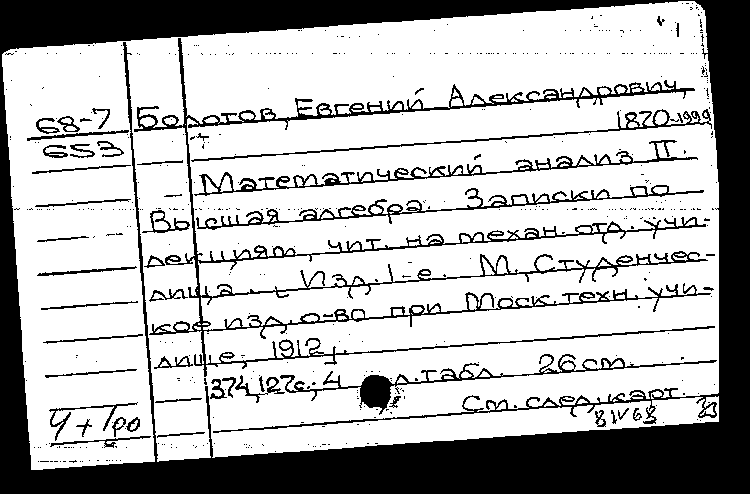 1
68-7 Болотов, Евгений Александрович,
653 1870-1999
Математический анализ II.
Высшая алгебра. Записки по
лекциям, чит. на механ. отд. учи-
лища. Изд. 1-е. М., Студенчес-
кое изд. о-во при Моск. техн. учи-
лище, 1912.
374, 127с.; 4 л. табл. 26 cm.
См. след. карт.
8 IV 68